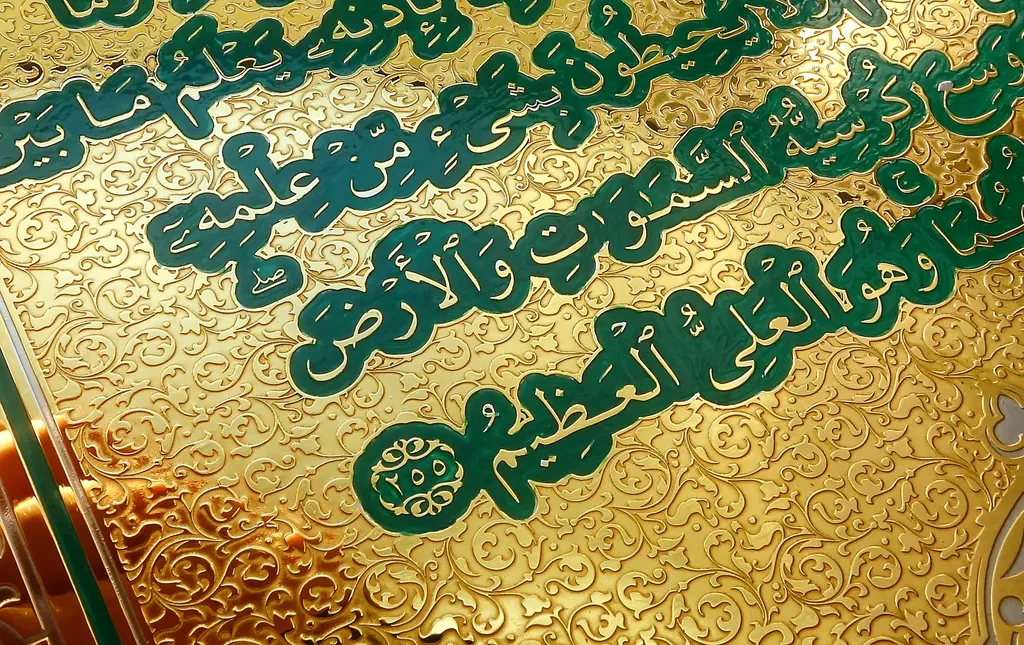 بِإِذْنِهِۦ يَعْلَمُ مَا بَيْنَ
يُحِيطُونَ بِشَىْءٍ مِّنْ عِلْمِهِۦٓ ۖ
وَسِعَ كُرْسِيُّهُ ٱلسَّمَٰوَٰتِ وَٱلْأَرْضَ
وَهُوَ ٱلْعَلِىُّ ٱلْعَظِيمُ ٢٥٥